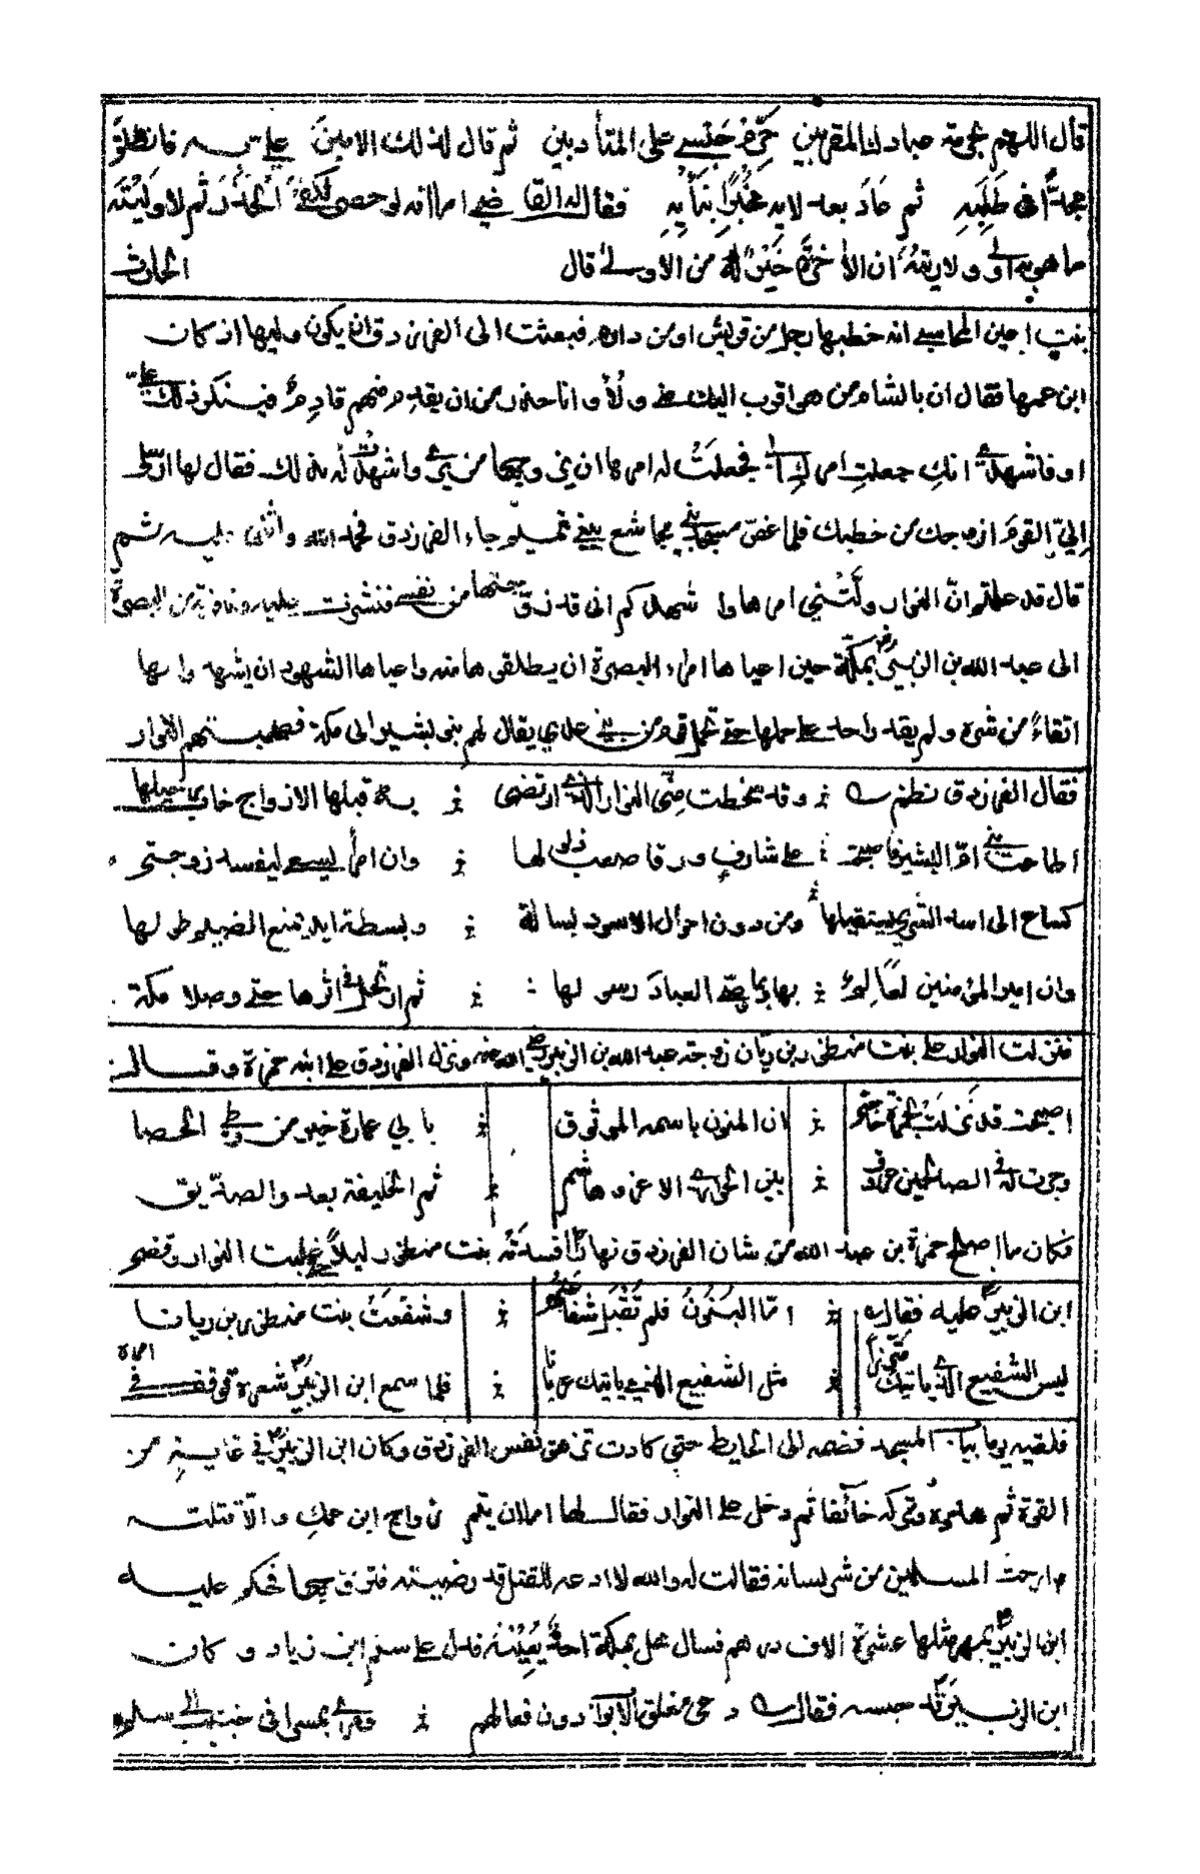 قال اللهم بحرمة عبادك المقربين حرم حبسي على المتأدبين ثم قال لذلك الامين علي به فانطلق
مجدا في طلبه ثم عاد بعد لايه مخبرا بنأيه فقال له القاضي اما انه لو حضر لكفي الحذر ثم لاوليته
ما هو به اولى ولاريته ان الأخرة خير له من الاولى قال الحارث
بنت اعين المجاشعي انه خطبها رجل من قريش او من دارم فبعثت الى الفرزدق ان يكون وليها اذ كان
ابن عمها فقال ان بالشام من هو اقرب اليك مني ولاء وانا حذر من ان يقدم منهم قادم فينكر ذلك علي
او فاشهدي انك جعلت امرك الي فجعلت له امرها ان يزوجها من يرى واشهدت له بذلك فقال لها ارسلي
الي القوم ازوجك من خطبك فلما غص مسجد بني مجاشع ببني تميم جاء الفرزدق فحمد الله واثنى عليه ثم
قال قد علمتم ان النوار ولتني امرها واشهدكم اني قد زوجتها من نفسي فنشزت عليه ونافرته من البصرة
الى عبد الله بن الزبير بمكة حين اعياها امراء البصرة ان يطلقوها منه واعياها الشهود ان يشهدوا لها
اتقاء من شره ولم يقدر احد على حملها حتى تحمل قوم من بني عدي يقال لهم بنو بشير الى مكة فصحبتهم النوار
فقال الفرزدق نظم وقد سخطت مني النوار الذي ارتضى به قبلها الازواج خاب رحيلها
اطاعت بني ام البشير فاصبحت على شارف ورقا صعب ذلولها وان امرأ يسعى ليفسد زوجتي
كساع الى اسد الشرى يستقيلها ومن دون احوال الاسود بسالة وبسطة ايد يمنع الضيم طولها
وان امير المؤمنين لعالم بها وبما وصى العباد رسولها ثم ارتحل في اثرها حتى وصلا مكة
فنزلت النوار على بنت منظور بن زبان زوجة عبد الله بن الزبير رضي الله عنه ونزل الفرزدق على ابنه حمزة وقال
اصبحت قد نزلت بحمزة حاجتي ان المنون باسمه الموثوق بابي عمارة خير من وطئ الحصا
وجرت له في الصالحين عروق بين الحواري الاغر وهاشم ثم الخليفة بعد والصديق
فكان ما اصلح حمزة بن عبد الله من شان الفرزدق نهارا افسدته بنت منظور ليلا فغلبت النوار وقضى
ابن الزبير عليه فقال اما البنون فلم تقبل شفاعتهم وشفعت بنت منظور بن زبانا
ليس الشفيع الذي ياتيك متزرا مثل الشفيع الذي ياتيك عريانا فلما سمع ابن الزبير شعره وقف في امره
فلقيه يوما بباب المسجد فضمه الى الحايط حتى كادت تزهق نفس الفرزدق وكان ابن الزبير في غاية من
القوة ثم هزه وتركه خائفا ثم دخل على النوار فقال لها اما ان يتم زواج ابن عمك والا قتلته
وارحت المسلمين من شر لسانه فقالت له والله لا ادعه للقتل قد رضيته فتزوجها فحكم عليه
ابن الزبير بمهر مثلها عشرة الاف درهم فسال هل بمكة احد يعينه فدل على سلم ابن زياد وكان
ابن الزبير قد حبسه فقال دعي مغلق الابواب دون فعالهم ومري بمسراني حثيث الى سلم